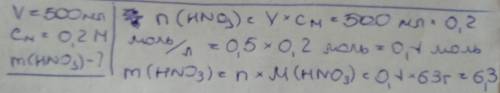 V = 500 мл
Cм = 0,2 М
m(HNO₃) - ?
n(HNO₃) = V × Cм = 500 мл · 0,2
моль/л = 0,5 × 0,2 моль = 0,1 моль
m(HNO₃) = n × M(HNO₃) = 0,1 · 63г = 6,3